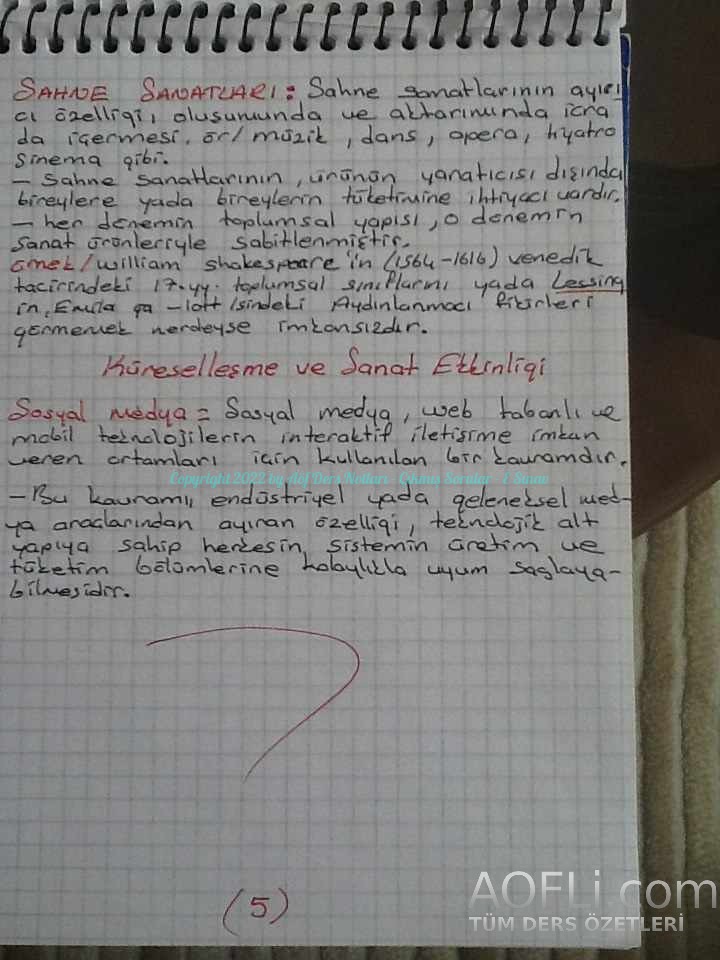 SAHNE SANATLARI: Sahne sanatlarının ayırı
cı özelliği, oluşumunda ve aktarımında icra
da içermesi. ör/ müzik, dans, opera, tiyatro
sinema gibi.
- Sahne sanatlarının, ürünün yaratıcısı dışında
bireylere yada bireylerin tüketimine ihtiyacı vardır.
- her dönemin toplumsal yapısı, o dönemin
sanat ürünleriyle sabitlenmiştir.
örnek/ william shakespeare'in (1564-1616) venedik
tacirindeki 17.yy. toplumsal sınıflarını yada Lessing
in, Emilia ga-lotti'sindeki Aydınlanmacı fikirleri
görmemek nerdeyse imkansızdır.
Küreselleşme ve Sanat Etkinliği
Sosyal medya = Sosyal medya, web tabanlı ve
mobil teknolojilerin interaktif iletişime imkan
veren ortamları için kullanılan bir kavramdır.
Copyright 2022 by Aöf Ders Notları - Çıkmış Sorular - E Sınav
- Bu kavramı, endüstriyel yada geleneksel med-
ya araçlarından ayıran özelliği, teknolojik alt
yapıya sahip herkesin, sistemin üretim ve
tüketim bölümlerine kolaylıkla uyum sağlaya-
bilmesidir.
(5)
AOFLi.com
TÜM DERS ÖZETLERİ